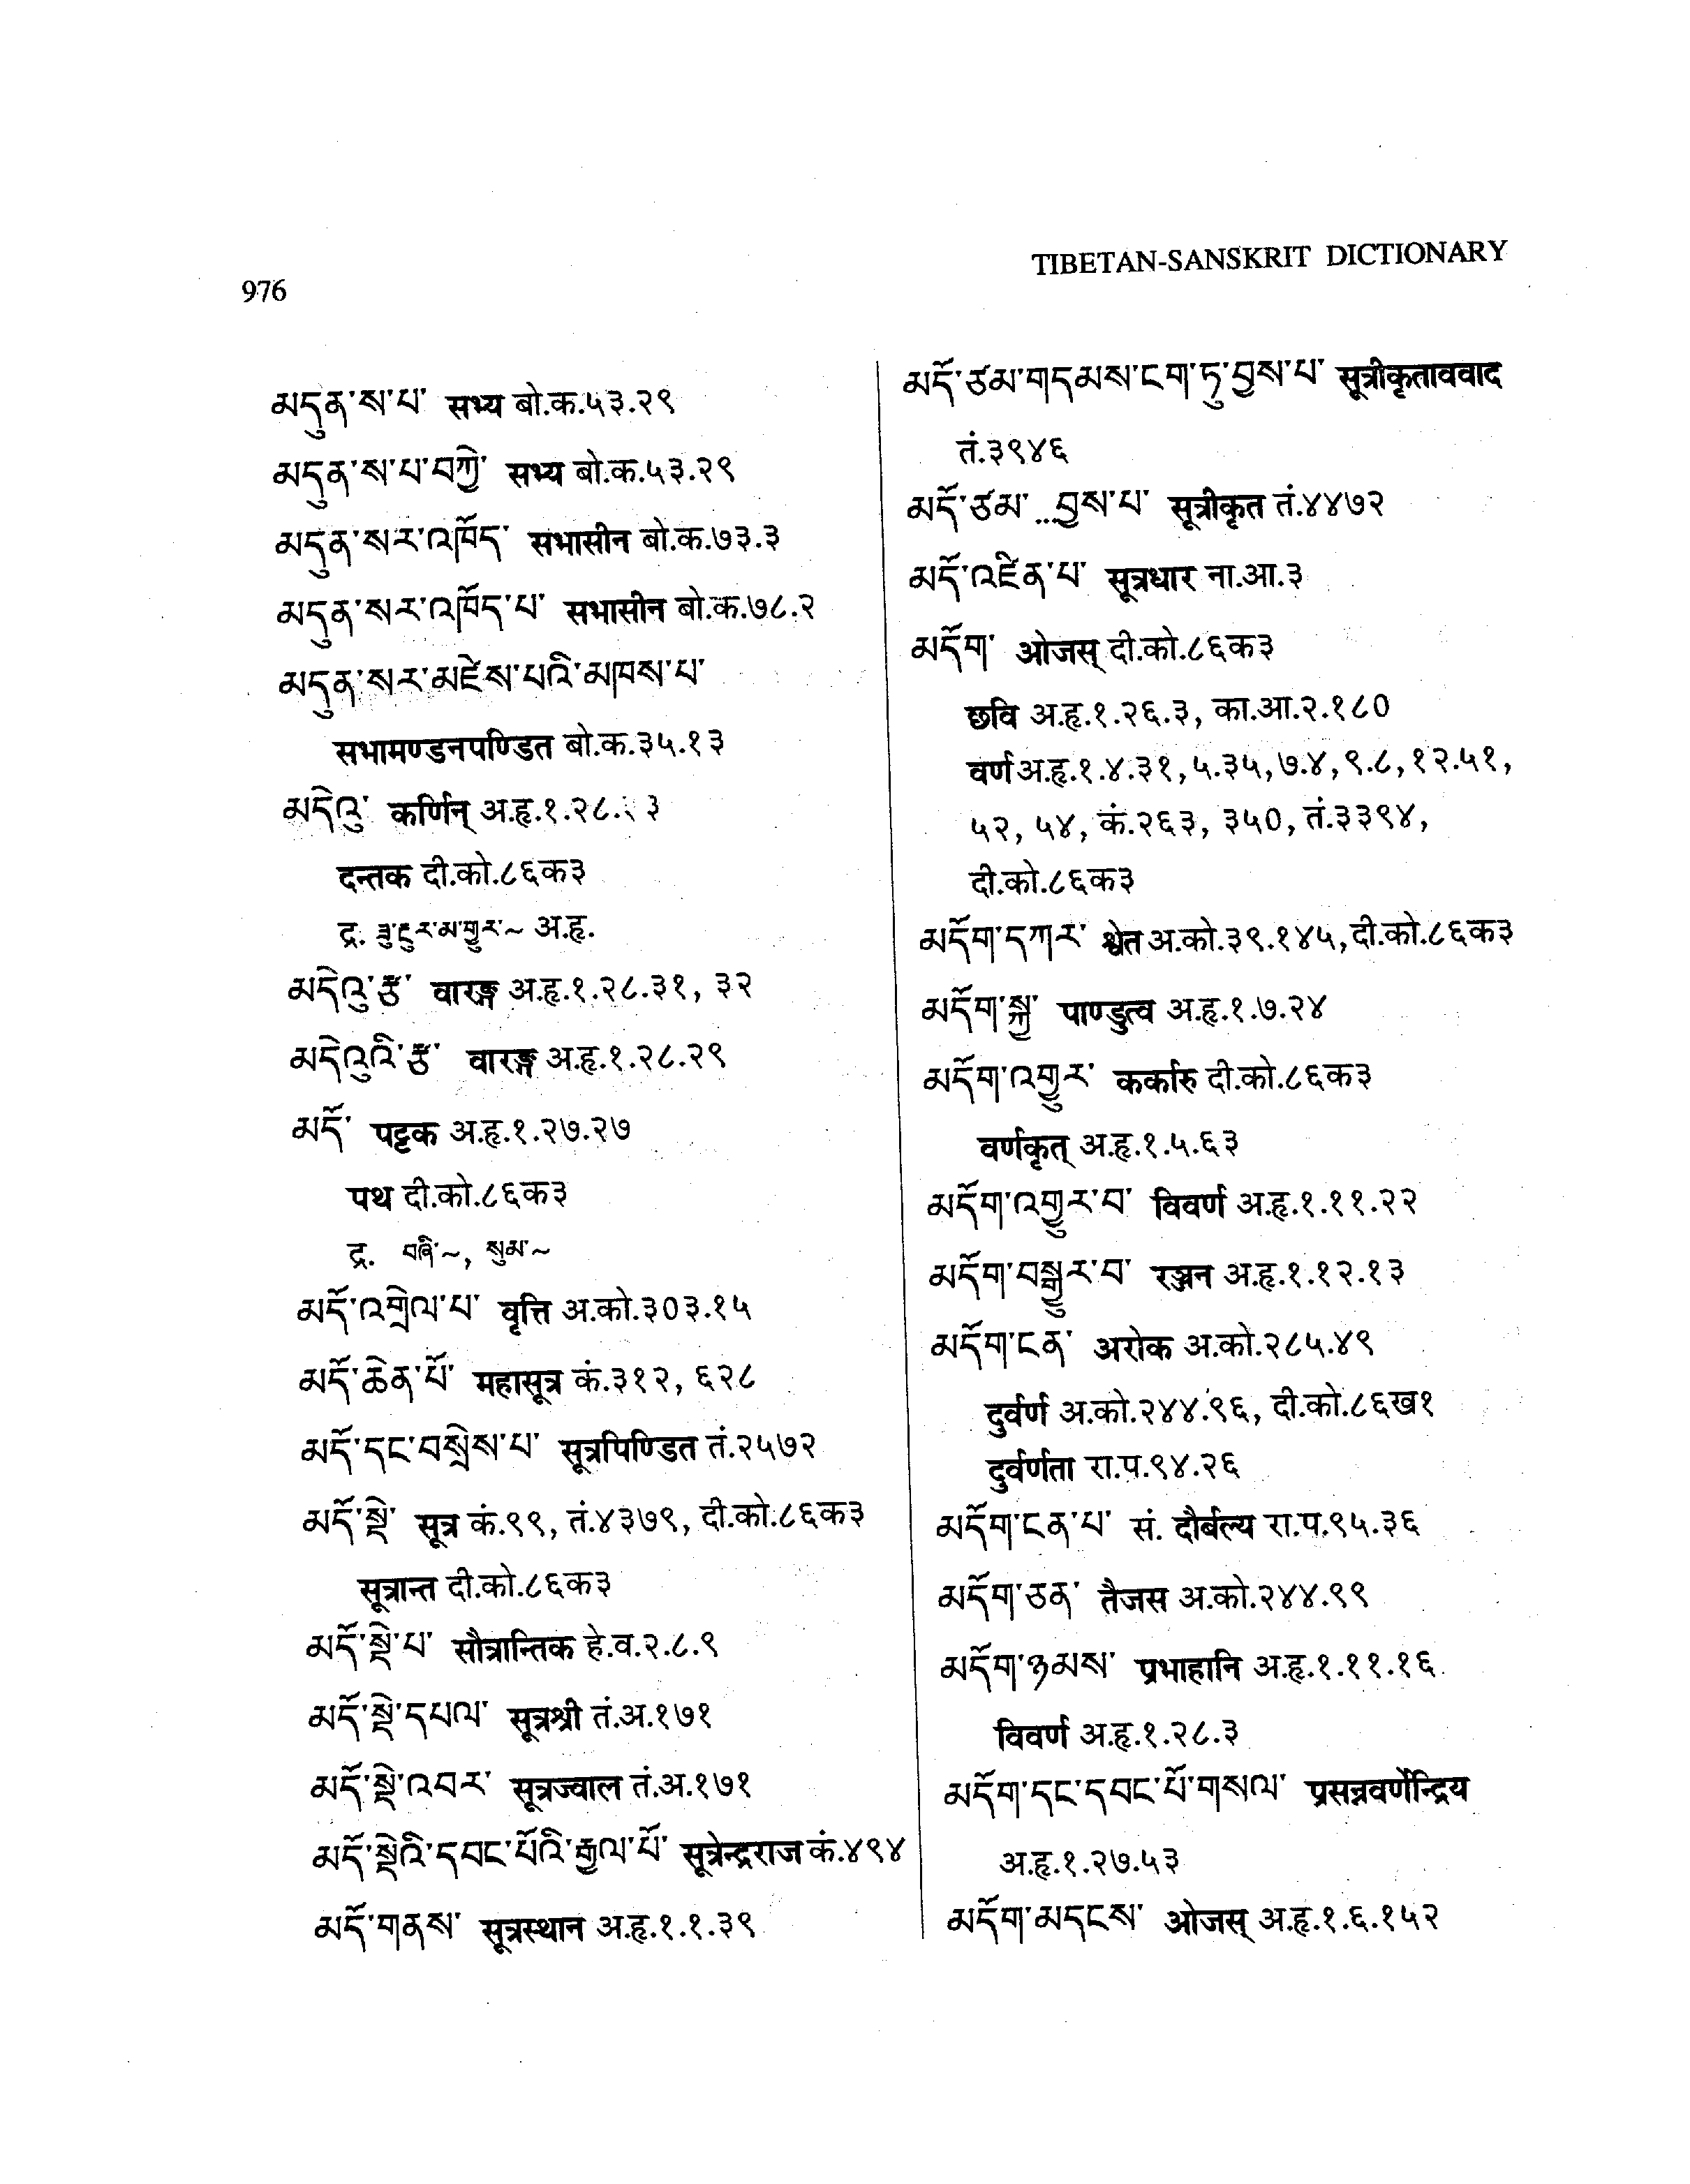 976
TIBETAN-SANSKRIT DICTIONARY
མདུན་ས་པ་ सभ्य बो.क.५३.२९
མདུན་ས་པ་བཀྱེ་ सभ्य बो.क.५३.२९
མདུན་སར་འཁོད་ सभासीन बो.क.७३.३
མདུན་སར་འཁོད་པ་ सभासीन बो.क.७८.२
མདུན་སར་མཛེས་པའི་མཁས་པ་
सभामण्डनपण्डित बो.क.३५.१३
མདེའུ་ कर्णिन् अ.हृ.१.२८.
दन्तक दी.को.८६क३
द्र. ~ अ.हृ.
མདེའུ་རྩ་ वारङ्ग अ.हृ.१.२८.३१, ३२
མདེའུའི་རྩ་ वारङ्ग अ.हृ.१.२८.२९
མདོ་ पट्टक अ.हृ.१.२७.२७
पथ दी.को.८६क३
द्र. བཞི་~, སུམ་~
མདོ་འགྲེལ་པ་ वृत्ति अ.को.३०३.१५
མདོ་ཆེན་པོ་ महासूत्र कं.३१२, ६२८
མདོ་དང་བསྲེས་པ་ सूत्रपिण्डित तं.२५७२
མདོ་སྡེ་ सूत्र कं.९९, तं.४३७९, दी.को.८६क३
सूत्रान्त दी.को.८६क३
མདོ་སྡེ་པ་ सौत्रान्तिक हे.व.२.८.९
མདོ་སྡེ་དཔལ་ सूत्रश्री तं.अ.१७१
མདོ་སྡེ་འབར་ सूत्रज्वाल तं.अ.१७१
མདོ་སྡེའི་དབང་པོའི་རྒྱལ་པོ་ सूत्रेन्द्रराज कं.४९४
མདོ་གནས་ सूत्रस्थान अ.हृ.१.१.३९
མདོ་ཙམ་གདམས་ངག་ཏུ་བྱས་པ་ सूत्रीकृताववाद
तं.३९४६
མདོ་ཙམ་...བྱས་པ་ सूत्रीकृत तं.४४७२
མདོ་འཛིན་པ་ सूत्रधार ना.आ.३
མདོག་ ओजस् दी.को.८६क३
छवि अ.हृ.१.२६.३, का.आ.२.१८०
वर्ण अ.हृ.१.४.३१, ५.३५, ७.४, ९.८, १२.५१,
५२, ५४, कं.२६३, ३५०, तं.३३९४,
दी.को.८६क३
མདོག་དཀར་ श्वेत अ.को.३९.१४५, दी.को.८६क३
མདོག་སྐྱ་ पाण्डुत्व अ.हृ.१.७.२४
མདོག་འགྱུར་ कर्कारु दी.को.८६क३
वर्णकृत् अ.हृ.१.५.६३
མདོག་འགྱུར་བ་ विवर्ण अ.हृ.१.११.२२
མདོག་བསྒྱུར་བ་ रञ्जन अ.हृ.१.१२.१३
མདོག་ངན་ अरोक अ.को.२८५.४९
दुर्वर्ण अ.को.२४४.९६, दी.को.८६ख१
दुर्वर्णता रा.प.९४.२६
མདོག་ངན་པ་ सं. दौर्बल्य रा.प.९५.३६
མདོག་ཅན་ तैजस अ.को.२४४.९९
མདོག་ཉམས་ प्रभाहानि अ.हृ.१.११.१६
विवर्ण अ.हृ.१.२८.३
མདོག་དང་དབང་པོ་གསལ་ प्रसन्नवर्णेन्द्रिय
अ.हृ.१.२७.५३
མདོག་མདངས་ ओजस् अ.हृ.१.६.१५२